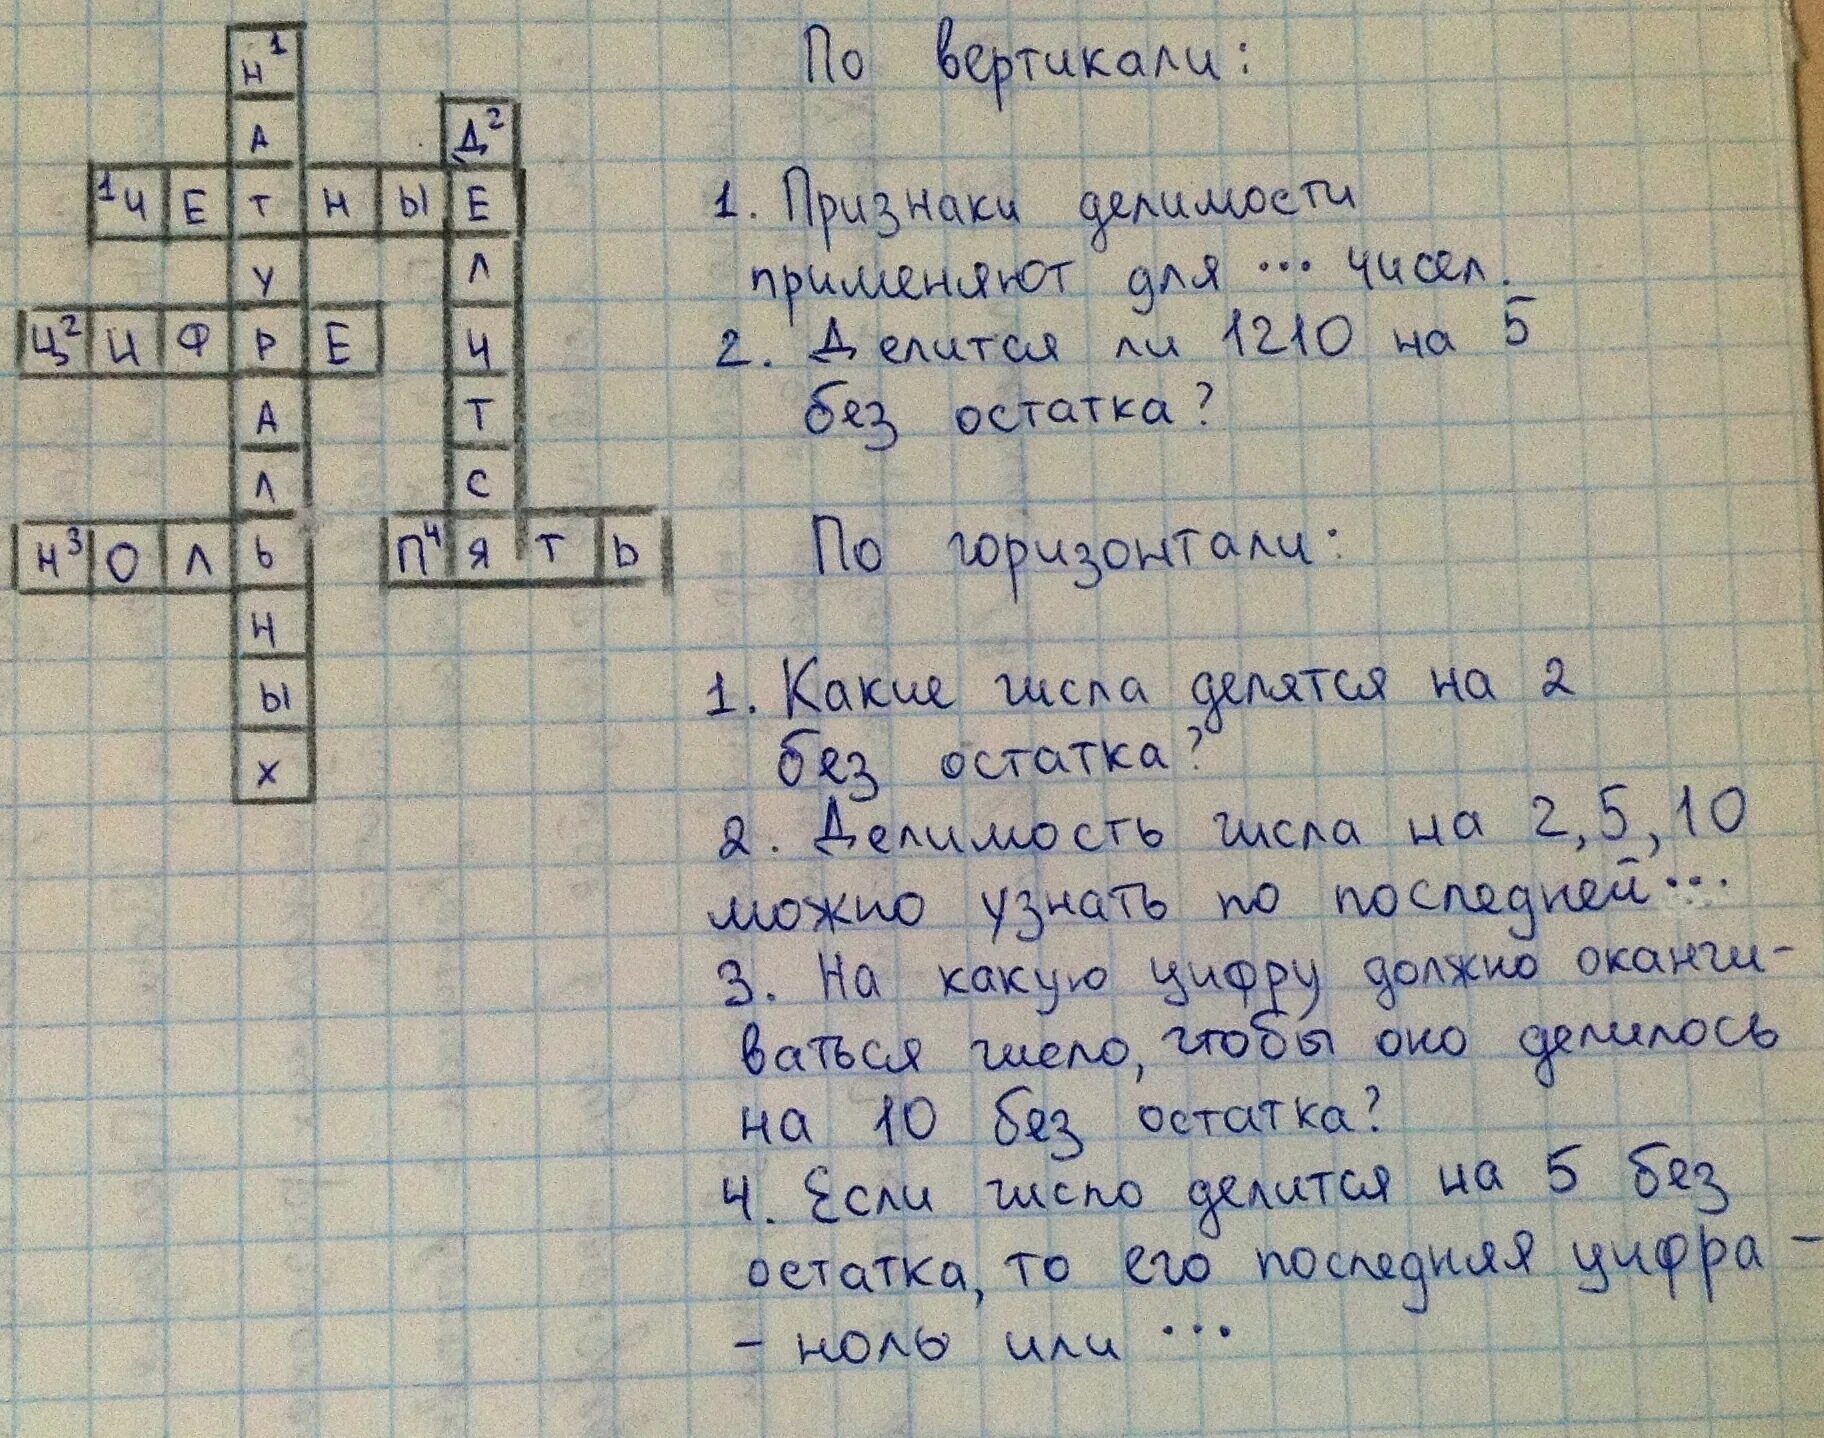 Н1
А
Д2
1Ч Е Т Н Ы Е
У
Л
Ц2 И Ф Р Е
И
А
Т
Л
С
Н3 О Л Ь
П4 Я Т Ь
Н
Ы
Х
По вертикали:
1. Признаки делимости
применяют для ... чисел.
2. Делится ли 1210 на 5
без остатка?
По горизонтали:
1. Какие числа делятся на 2
без остатка?
2. Делимость числа на 2, 5, 10
можно узнать по последней...
3. На какую цифру должно оканчи-
ваться число, чтобы оно делилось
на 10 без остатка?
4. Если число делится на 5 без
остатка, то его последняя цифра -
- ноль или ...